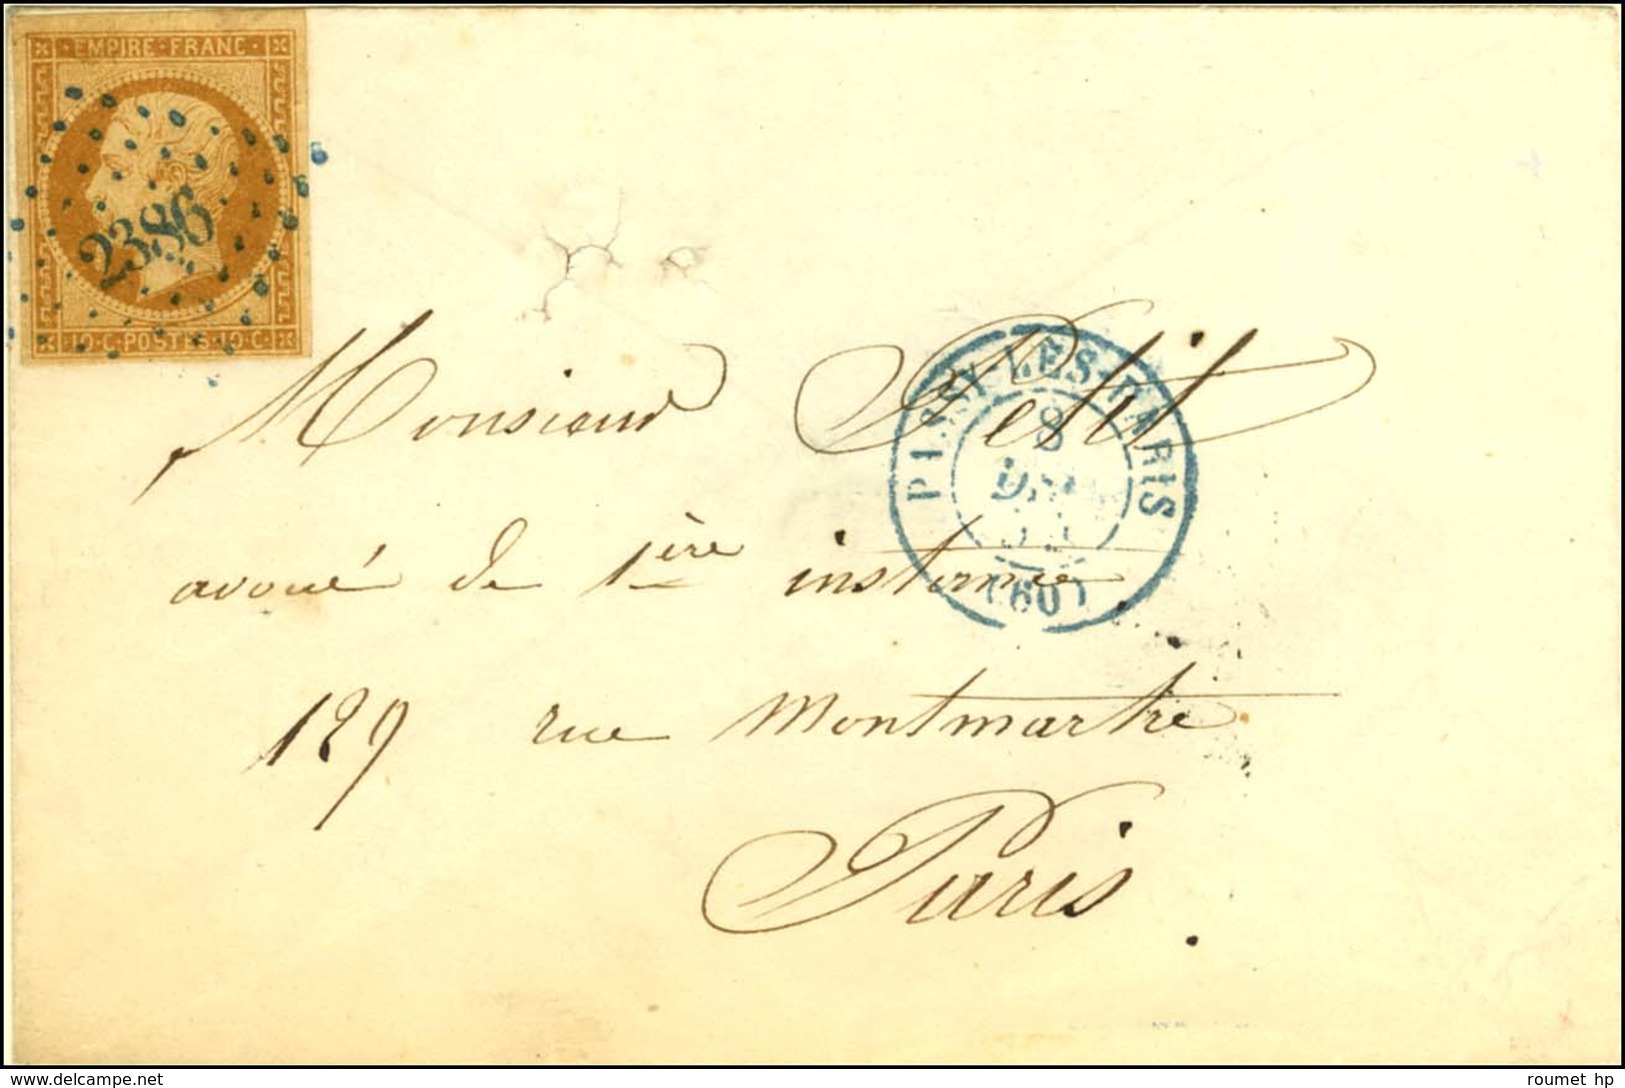 EMPIRE · FRANC ·
2386
· 10 · C · POSTES · 10 · C ·
PASSY-LÈS-PARIS
8
(60)
Monsieur Petit
avoué de 1ère instance,
189 rue Montmartre
Paris.
www.delcampe.net
roumet hp